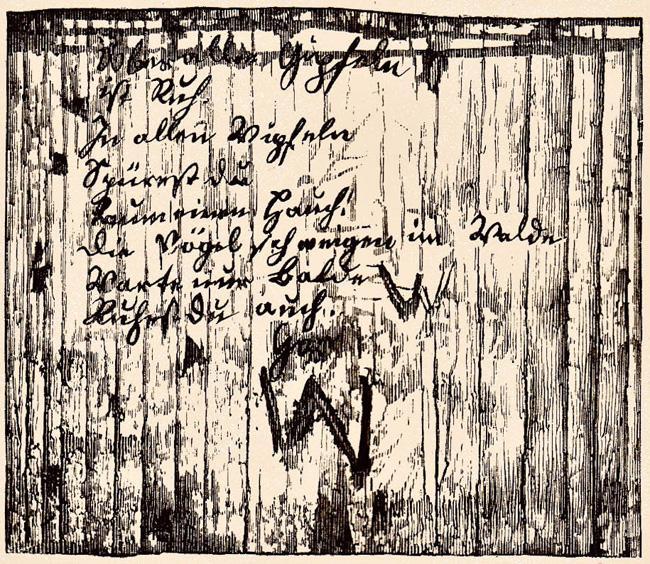 über allen Gipfeln
ist Ruh.
In allen Wipfeln
Spürest du
kaum einen Hauch.
die Vögel schweigen im Walde
Warte nur Balde W
Ruhest du auch.
W